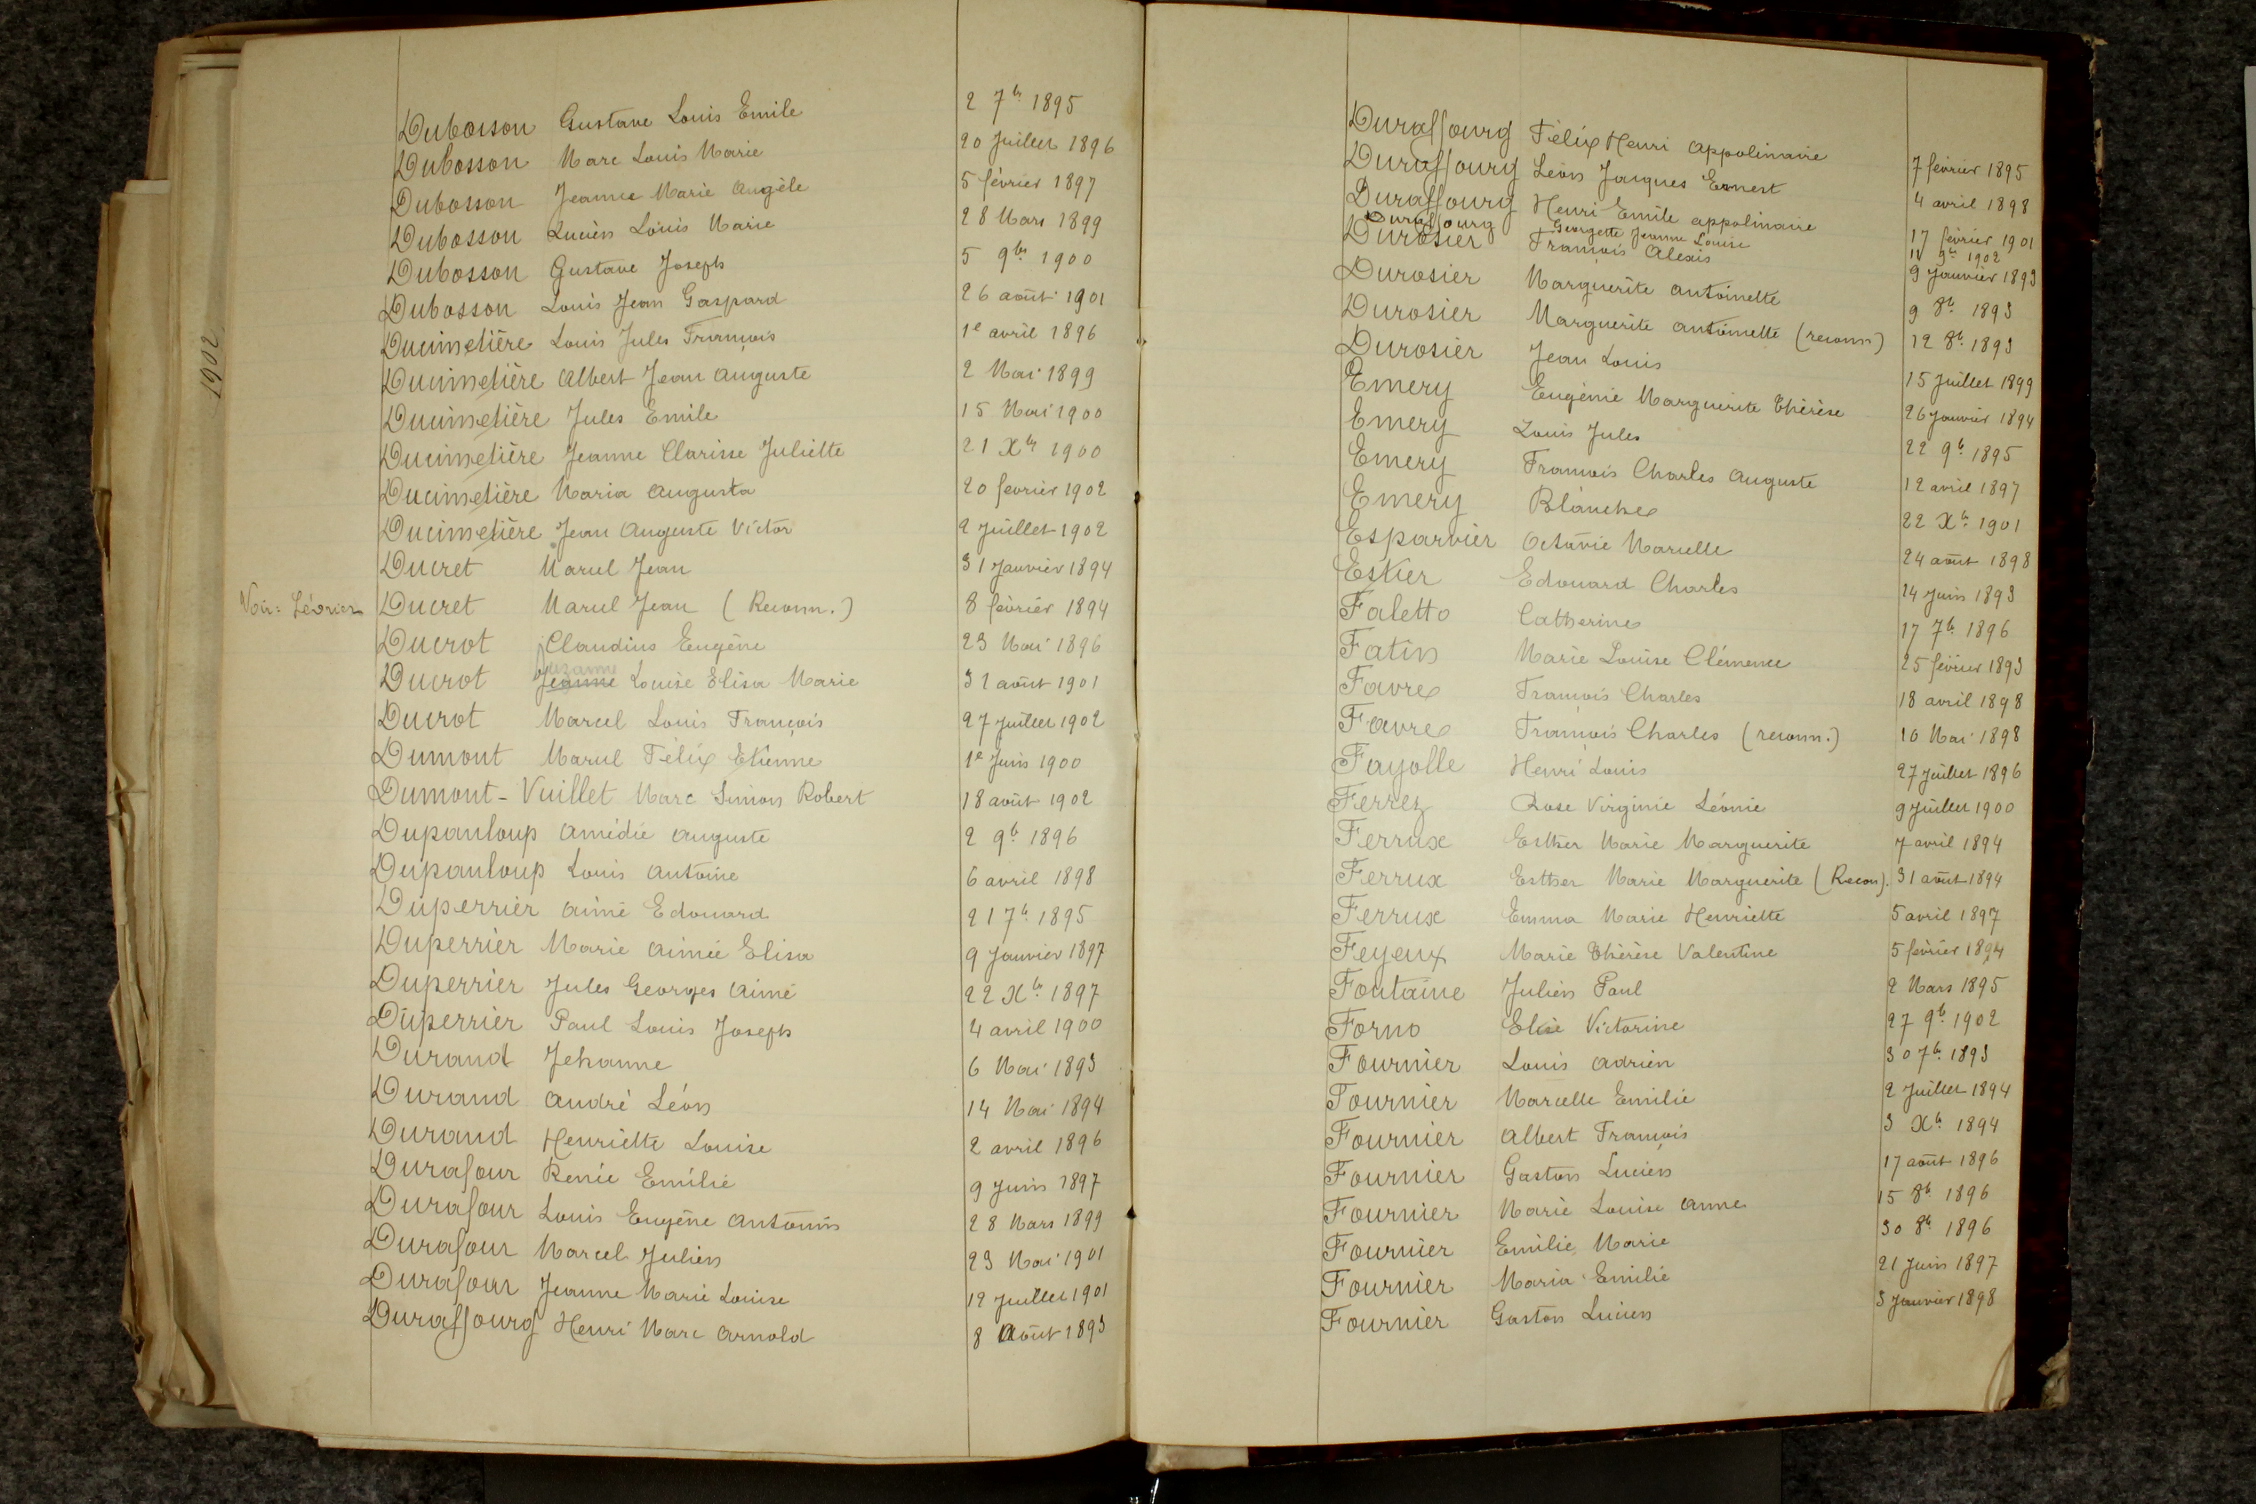 1902
Dubosson Gustave Louis Emile 2 7bre 1895
Dubosson Marc Louis Marie 20 Juillet 1896
Dubosson Jeanne Marie Angèle 5 février 1897
Dubosson Lucien Louis Marie 28 Mars 1899
Dubosson Gustave Joseph 5 9bre 1900
Dubosson Louis Jean Gaspard 26 août 1901
Ducimetière Louis Jules François 1e avril 1896
Ducimetière Albert Jean Auguste 2 Mai 1899
Ducimetière Jules Emile 15 Mai 1900
Ducimetière Jeanne Clarisse Juliette 21 Xbre 1900
Ducimetière Maria Augusta 20 fevrier 1902
Ducimetière Jean Auguste Victor 2 Juillet 1902
Ducret Marcel Jean 31 Janvier 1894
Voir: Lévrier Ducret Marcel Jean (Reconn.) 8 février 1894
Ducrot Claudius Eugène 23 Mai 1896
Ducrot Jeanne Suzanne Louise Elisa Marie 31 août 1901
Ducrot Marcel Louis François 27 Juillet 1902
Dumont Marcel Félix Etienne 1e Juin 1900
Dumont-Vuillet Marc Simon Robert 18 août 1902
Dupanloup Amédée Auguste 2 9b 1896
Dupanloup Louis Antoine 6 avril 1898
Duperrier Aimé Edouard 21 7b 1895
Duperrier Marie Aimée Elisa 9 Janvier 1897
Duperrier Jules Georges Aimé 22 Xbre 1897
Duperrier Paul Louis Joseph 4 avril 1900
Durand Jehanne 6 Mai 1893
Durand André Léon 14 Mai 1894
Durand Henriette Louise 2 avril 1896
Durafour Renée Emélie 9 Juin 1897
Durafour Louis Eugène Antonin 28 Mars 1899
Durafour Marcel Julien 23 Mai 1901
Durafour Jeanne Marie Louise 12 Juillet 1901
Duraffourg Henri Marc Arnold 8 Août 1893
Duraffourg Félix Henri Appolinaire 7 février 1895
Duraffourg Léon Jacques Ernest 4 avril 1898
Duraffourg Henri Emile Appolinaire 17 février 1901
Duraffourg Georgette Jeanne Louise 11 9bre 1902
Durosier François Alexis 9 Janvier 1893
Durosier Marguerite Antoinette 9 8b 1893
Durosier Marguerite Antoinette (reconn) 12 8b 1893
Durosier Jean Louis 15 Juillet 1899
Emery Eugénie Marguerite Thérèse 26 Janvier 1894
Emery Louis Jules 22 9b 1895
Emery François Charles Auguste 12 avril 1897
Emery Blanche 22 Xb 1901
Esparvier Octavie Marcelle 24 août 1898
Eskier Edouard Charles 14 Juin 1893
Faletto Catherine 17 7b 1896
Fatin Marie Louise Clémence 25 février 1893
Favre François Charles 18 avril 1898
Favre François Charles (reconn.) 10 Mai 1898
Fayolle Henri Louis 27 Juillet 1896
Ferrez Rose Virginie Léonie 9 Juillet 1900
Ferrux Esther Marie Marguerite 7 avril 1894
Ferrux Esther Marie Marguerite (Recon). 31 août 1894
Ferrux Emma Marie Henriette 5 avril 1897
Feyeux Marie Thérèse Valentine 5 février 1894
Fontaine Julien Paul 2 Mars 1895
Forno Elise Victorine 27 9b 1902
Fournier Louis Adrien 30 7b 1893
Fournier Marcelle Emilie 2 Juillet 1894
Fournier Albert François 3 Xb 1894
Fournier Gaston Lucien 17 août 1896
Fournier Marie Louise Anne 15 8b 1896
Fournier Emilie Marie 30 8b 1896
Fournier Maria Emilie 21 Juin 1897
Fournier Gaston Lucien 3 Janvier 1898